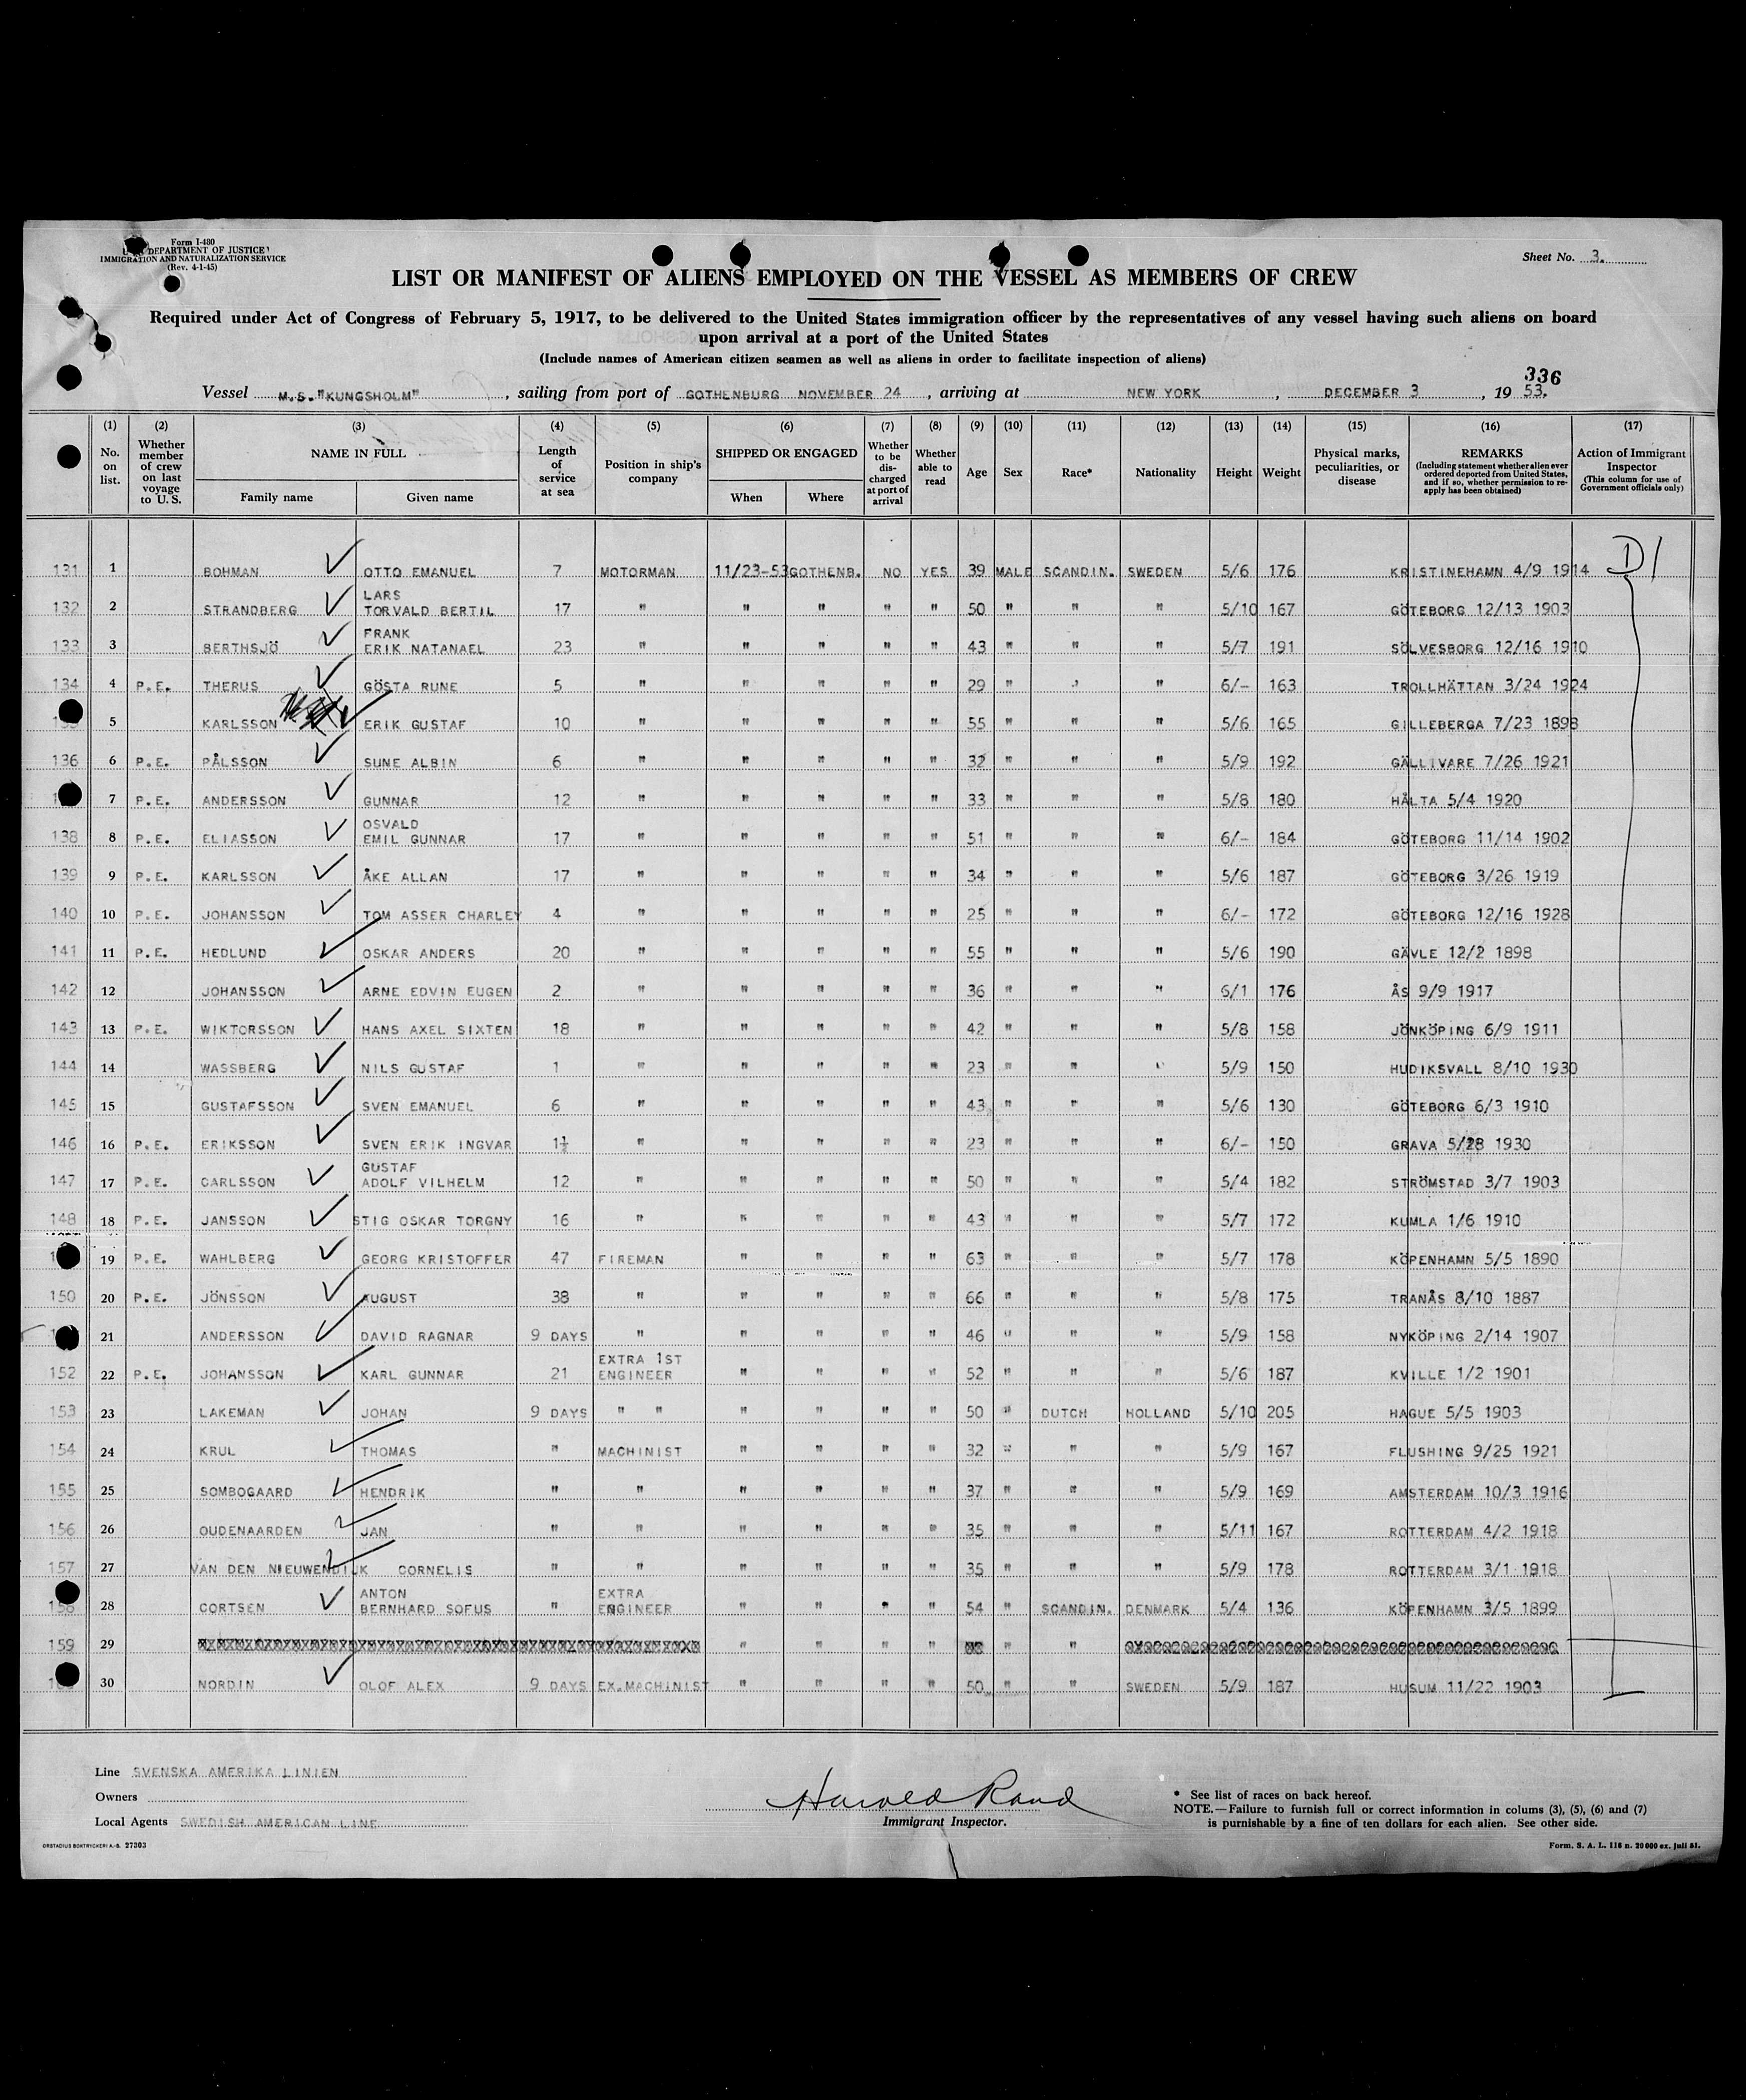 Form I-480
U. S. DEPARTMENT OF JUSTICE
IMMIGRATION AND NATURALIZATION SERVICE
(Rev. 4-1-45)
Sheet No. 3.
LIST OR MANIFEST OF ALIENS EMPLOYED ON THE VESSEL AS MEMBERS OF CREW
Required under Act of Congress of February 5, 1917, to be delivered to the United States immigration officer by the representatives of any vessel having such aliens on board
upon arrival at a port of the United States
(Include names of American citizen seamen as well as aliens in order to facilitate inspection of aliens)
336
Vessel M.S."KUNGSHOLM" , sailing from port of GOTHENBURG NOVEMBER 24 , arriving at NEW YORK , DECEMBER 3 , 19 53.
(1) No. on list. (2) Whether member of crew on last voyage to U. S. (3) NAME IN FULL Family name Given name (4) Length of service at sea (5) Position in ship's company (6) SHIPPED OR ENGAGED When Where (7) Whether to be dis-charged at port of arrival (8) Whether able to read (9) Age (10) Sex (11) Race* (12) Nationality (13) Height (14) Weight (15) Physical marks, peculiarities, or disease (16) REMARKS (Including statement whether alien ever ordered deported from United States, and if so, whether permission to re-apply has been obtained) (17) Action of Immigrant Inspector (This column for use of Government officials only)
131 1 BOHMAN OTTO EMANUEL 7 MOTORMAN 11/23-53 GOTHENB. NO YES 39 MALE SCANDIN. SWEDEN 5/6 176 KRISTINEHAMN 4/9 1914 D1
132 2 STRANDBERG LARS TORVALD BERTIL 17 " " " " " 50 " " " 5/10 167 GÖTEBORG 12/13 1903
133 3 BERTHSJÖ FRANK ERIK NATANAEL 23 " " " " " 43 " " " 5/7 191 SÖLVESBORG 12/16 1910
134 4 P.E. THERUS GÖSTA RUNE 5 " " " " " 29 " " " 6/- 163 TROLLHÄTTAN 3/24 1924
5 KARLSSON ERIK GUSTAF 10 " " " " " 55 " " " 5/6 165 GILLEBERGA 7/23 1898
136 6 P.E. PÅLSSON SUNE ALBIN 6 " " " " " 32 " " " 5/9 192 GÄLLIVARE 7/26 1921
7 P.E. ANDERSSON GUNNAR 12 " " " " " 33 " " " 5/8 180 HÅLTA 5/4 1920
138 8 P.E. ELIASSON OSVALD EMIL GUNNAR 17 " " " " " 51 " " " 6/- 184 GÖTEBORG 11/14 1902
139 9 P.E. KARLSSON ÅKE ALLAN 17 " " " " " 34 " " " 5/6 187 GÖTEBORG 3/26 1919
140 10 P.E. JOHANSSON TOM ASSER CHARLEY 4 " " " " " 25 " " " 6/- 172 GÖTEBORG 12/16 1928
141 11 P.E. HEDLUND OSKAR ANDERS 20 " " " " " 55 " " " 5/6 190 GÄVLE 12/2 1898
142 12 JOHANSSON ARNE EDVIN EUGEN 2 " " " " " 36 " " " 6/1 176 ÅS 9/9 1917
143 13 P.E. WIKTORSSON HANS AXEL SIXTEN 18 " " " " " 42 " " " 5/8 158 JÖNKÖPING 6/9 1911
144 14 WASSBERG NILS GUSTAF 1 " " " " " 23 " " " 5/9 150 HUDIKSVALL 8/10 1930
145 15 GUSTAFSSON SVEN EMANUEL 6 " " " " " 43 " " " 5/6 130 GÖTEBORG 6/3 1910
146 16 P.E. ERIKSSON SVEN ERIK INGVAR 1½ " " " " " 23 " " " 6/- 150 GRAVA 5/28 1930
147 17 P.E. CARLSSON GUSTAF ADOLF VILHELM 12 " " " " " 50 " " " 5/4 182 STRÖMSTAD 3/7 1903
148 18 P.E. JANSSON STIG OSKAR TORGNY 16 " " " " " 43 " " " 5/7 172 KUMLA 1/6 1910
19 P.E. WAHLBERG GEORG KRISTOFFER 47 FIREMAN " " " " 63 " " " 5/7 178 KÖPENHAMN 5/5 1890
150 20 P.E. JÖNSSON AUGUST 38 " " " " " 66 " " " 5/8 175 TRANÅS 8/10 1887
21 ANDERSSON DAVID RAGNAR 9 DAYS " " " " " 46 " " " 5/9 158 NYKÖPING 2/14 1907
152 22 P.E. JOHANSSON KARL GUNNAR 21 EXTRA 1ST ENGINEER " " " " 52 " " " 5/6 187 KVILLE 1/2 1901
153 23 LAKEMAN JOHAN 9 DAYS " " " " " " 50 " DUTCH HOLLAND 5/10 205 HAGUE 5/5 1903
154 24 KRUL THOMAS " MACHINIST " " " " 32 " " " 5/9 167 FLUSHING 9/25 1921
155 25 SOMBOGAARD HENDRIK " " " " " " 37 " " " 5/9 169 AMSTERDAM 10/3 1916
156 26 OUDENAARDEN JAN " " " " " " 35 " " " 5/11 167 ROTTERDAM 4/2 1918
157 27 VAN DEN NIEUWENDIJK CORNELIS " " " " " " 35 " " " 5/9 178 ROTTERDAM 3/1 1918
158 28 CORTSEN ANTON BERNHARD SOFUS " EXTRA ENGINEER " " " " 54 " SCANDIN. DENMARK 5/4 136 KÖPENHAMN 3/5 1899
159 29 " " " " " "
30 NORDIN OLOF ALEX 9 DAYS EX.MACHINIST " " " " 50 " " SWEDEN 5/9 187 HUSUM 11/22 1903
Line SVENSKA AMERIKA LINIEN
Owners
Local Agents SWEDISH AMERICAN LINE
Harold Rand
Immigrant Inspector.
* See list of races on back hereof.
NOTE.—Failure to furnish full or correct information in colums (3), (5), (6) and (7)
is punishable by a fine of ten dollars for each alien. See other side.
ORSTADIUS BOKTRYCKERI A.-B. 27303
Form. S. A. L. 116 n. 20 000 ex. juli 51.